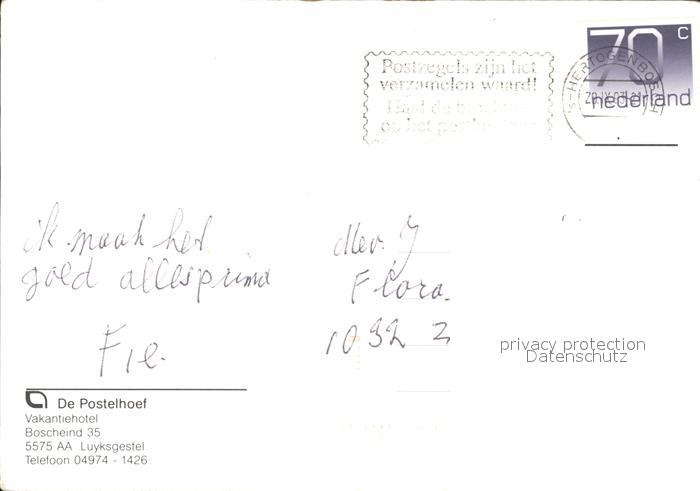 70 C
nederland
's-HERTOGENBOSCH
Postzegels zijn het
verzamelen waard!
Haal de
op het
ik maak het
goed alles prima
Fie.
Mev. J
Flora.
1032 2
privacy protection
Datenschutz
De Postelhoef
Vakantiehotel
Boscheind 35
5575 AA Luyksgestel
Telefoon 04974 - 1426